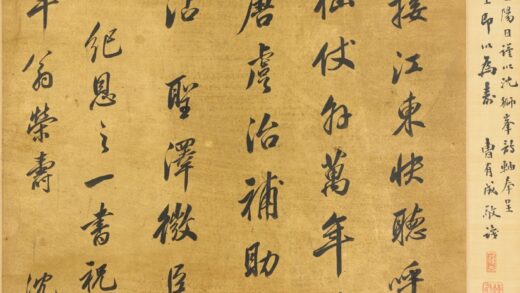 陽日謹以沈獅峯詩軸奉呈
即以為壽 曹有成敬識
接江東快聽呼
仙仗外萬年
唐虞治補助
沾 聖澤微臣
紀恩之一書祝
年翁榮壽 沈